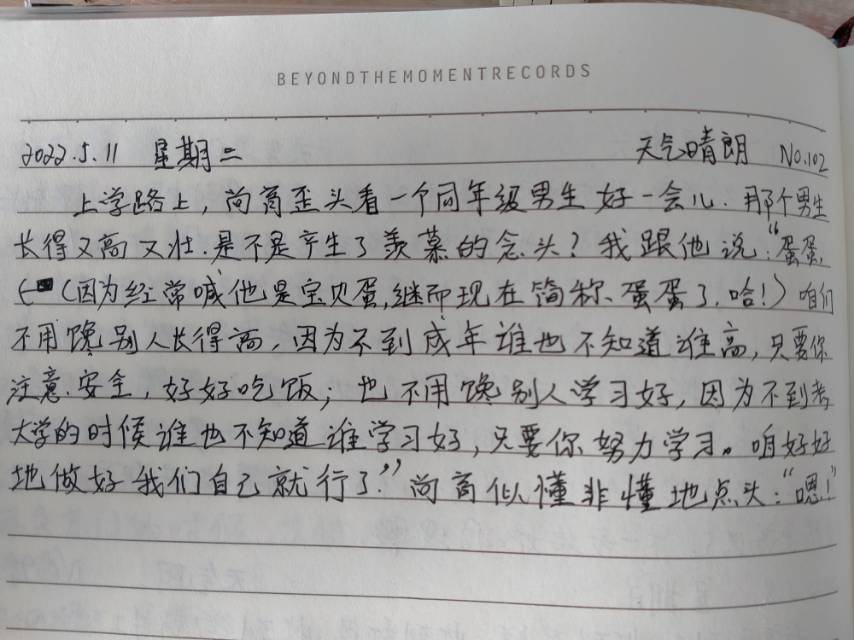 BEYONDTHEMOMENTRECORDS
2022.5.11 星期二 天气晴朗 No.102
上学路上，尚商歪头看一个同年级男生好一会儿.那个男生
长得又高又壮.是不是产生了羡慕的念头？我跟他说：“蛋蛋，
（因为经常喊他是宝贝蛋，继而现在简称、蛋蛋了，哈！）咱们
不用馋别人长得高，因为不到成年谁也不知道谁高，只要你
注意.安全，好好吃饭；也不用馋别人学习好，因为不到考
大学的时候谁也不知道谁学习好，只要你努力学习。咱好好
地做好我们自己就行了.”尚商似懂非懂地点头：“嗯！”